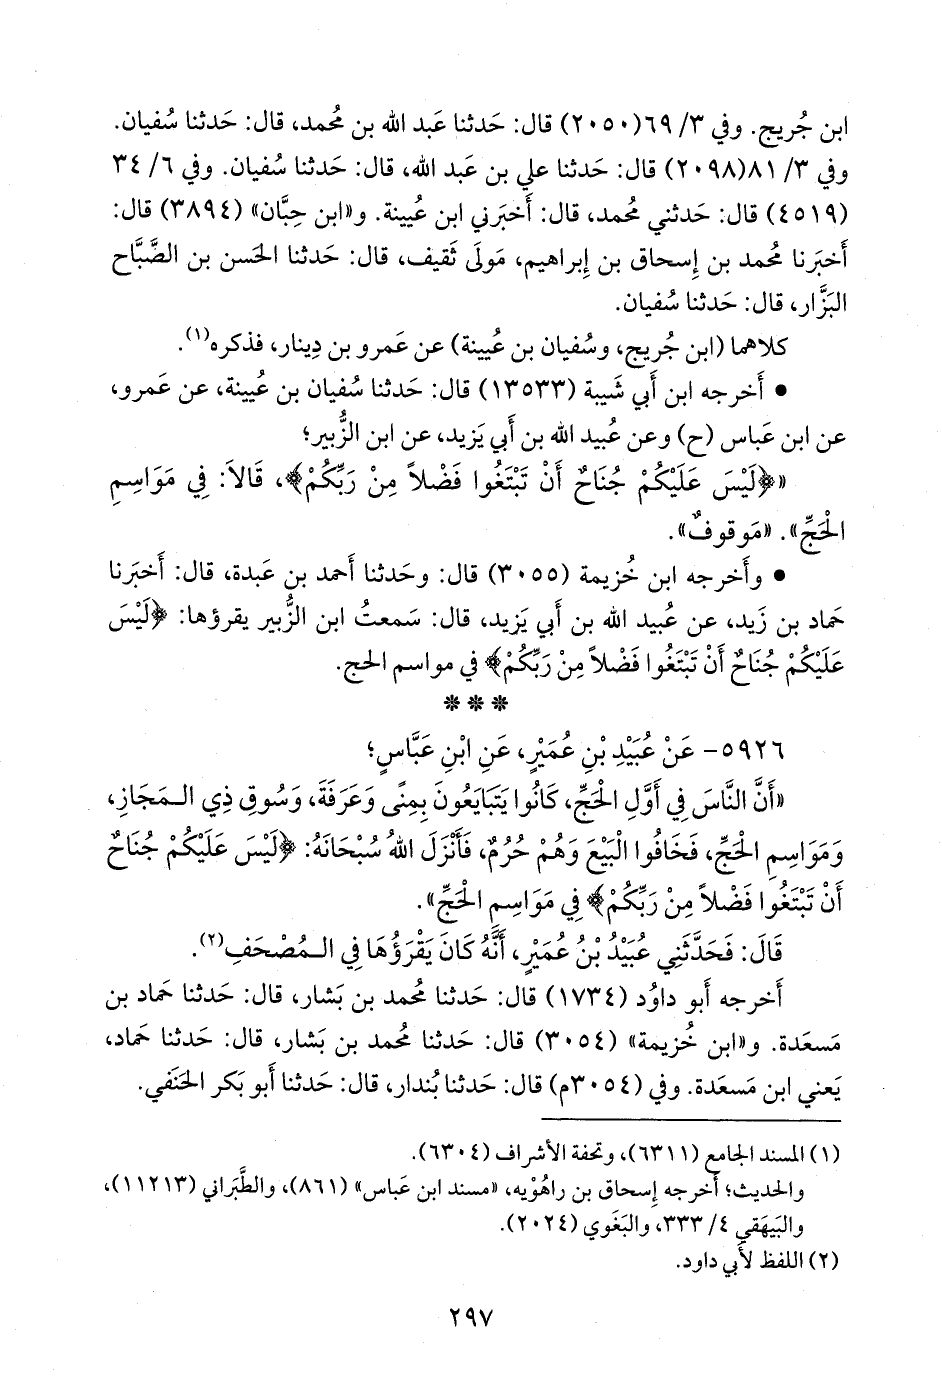 ابن جُريج. وفي ٣/ ٦٩(٢٠٥٠) قال: حَدثنا عَبد الله بن مُحمد، قال: حَدثنا سُفيان.
وفي ٣/ ٨١(٢٠٩٨) قال: حَدثنا علي بن عَبد الله، قال: حَدثنا سُفيان. وفي ٦/ ٣٤
(٤٥١٩) قال: حَدثني مُحمد، قال: أَخبَرني ابن عُيينة. و«ابن حِبَّان» (٣٨٩٤) قال:
أَخبَرنا مُحمد بن إِسحاق بن إِبراهيم، مَولَى ثَقيف، قال: حَدثنا الحَسن بن الصَّبَّاح
البَزَّار، قال: حَدثنا سُفيان.
كلاهما (ابن جُريج، وسُفيان بن عُيينة) عن عَمرو بن دِينار، فذكره(١).
• أَخرجه ابن أَبي شَيبة (١٣٥٣٣) قال: حَدثنا سُفيان بن عُيينة، عن عَمرو،
عن ابن عَباس (ح) وعن عُبيد الله بن أَبي يَزيد، عن ابن الزُّبير؛
«﴿لَيْسَ عَلَيْكُمْ جُنَاحٌ أَنْ تَبْتَغُوا فَضْلاً مِنْ رَبِّكُمْ﴾، قَالاَ: فِي مَوَاسِمِ
الْحَجِّ». «مَوقوفٌ».
• وأَخرجه ابن خُزيمة (٣٠٥٥) قال: وحَدثنا أَحمد بن عَبدة، قال: أَخبَرنا
حَماد بن زَيد، عن عُبيد الله بن أَبي يَزيد، قال: سَمعتُ ابن الزُّبير يقرؤها: ﴿لَيْسَ
عَلَيْكُمْ جُنَاحٌ أَنْ تَبْتَغُوا فَضْلاً مِنْ رَبِّكُمْ﴾ في مواسم الحج.
* * *
٥٩٢٦- عَنْ عُبَيْدِ بْنِ عُمَيْرٍ، عَنِ ابْنِ عَبَّاسٍ؛
«أَنَّ النَّاسَ فِي أَوَّلِ الْحَجِّ، كَانُوا يَتَبَايَعُونَ بِمِنًى وَعَرَفَةَ، وَسُوقِ ذِي الـمَجَازِ،
وَمَوَاسِمِ الْحَجِّ، فَخَافُوا الْبَيْعَ وَهُمْ حُرُمٌ، فَأَنْزَلَ اللهُ سُبْحَانَهُ: ﴿لَيْسَ عَلَيْكُمْ جُنَاحٌ
أَنْ تَبْتَغُوا فَضْلاً مِنْ رَبِّكُمْ﴾ فِي مَوَاسِمِ الْحَجِّ».
قَالَ: فَحَدَّثَنِي عُبَيْدُ بْنُ عُمَيْرٍ، أَنَّهُ كَانَ يَقْرَؤُهَا فِي الـمُصْحَفِ(٢).
أَخرجه أَبو داوُد (١٧٣٤) قال: حَدثنا مُحمد بن بَشار، قال: حَدثنا حَماد بن
مَسعَدة. و«ابن خُزيمة» (٣٠٥٤) قال: حَدثنا مُحمد بن بَشار، قال: حَدثنا حَماد،
يَعني ابن مَسعَدة. وفي (٣٠٥٤م) قال: حَدثنا بُندار، قال: حَدثنا أَبو بَكر الحَنَفي.
(١) المسند الجامع (٦٣١١)، وتحفة الأشراف (٦٣٠٤).
والحديث؛ أخرجه إسحاق بن راهُوْيه، «مسند ابن عَباس» (٨٦١)، والطَّبَراني (١١٢١٣)،
والبَيهَقي ٤/ ٣٣٣، والبَغَوي (٢٠٢٤).
(٢) اللفظ لأَبي داود.
٢٩٧